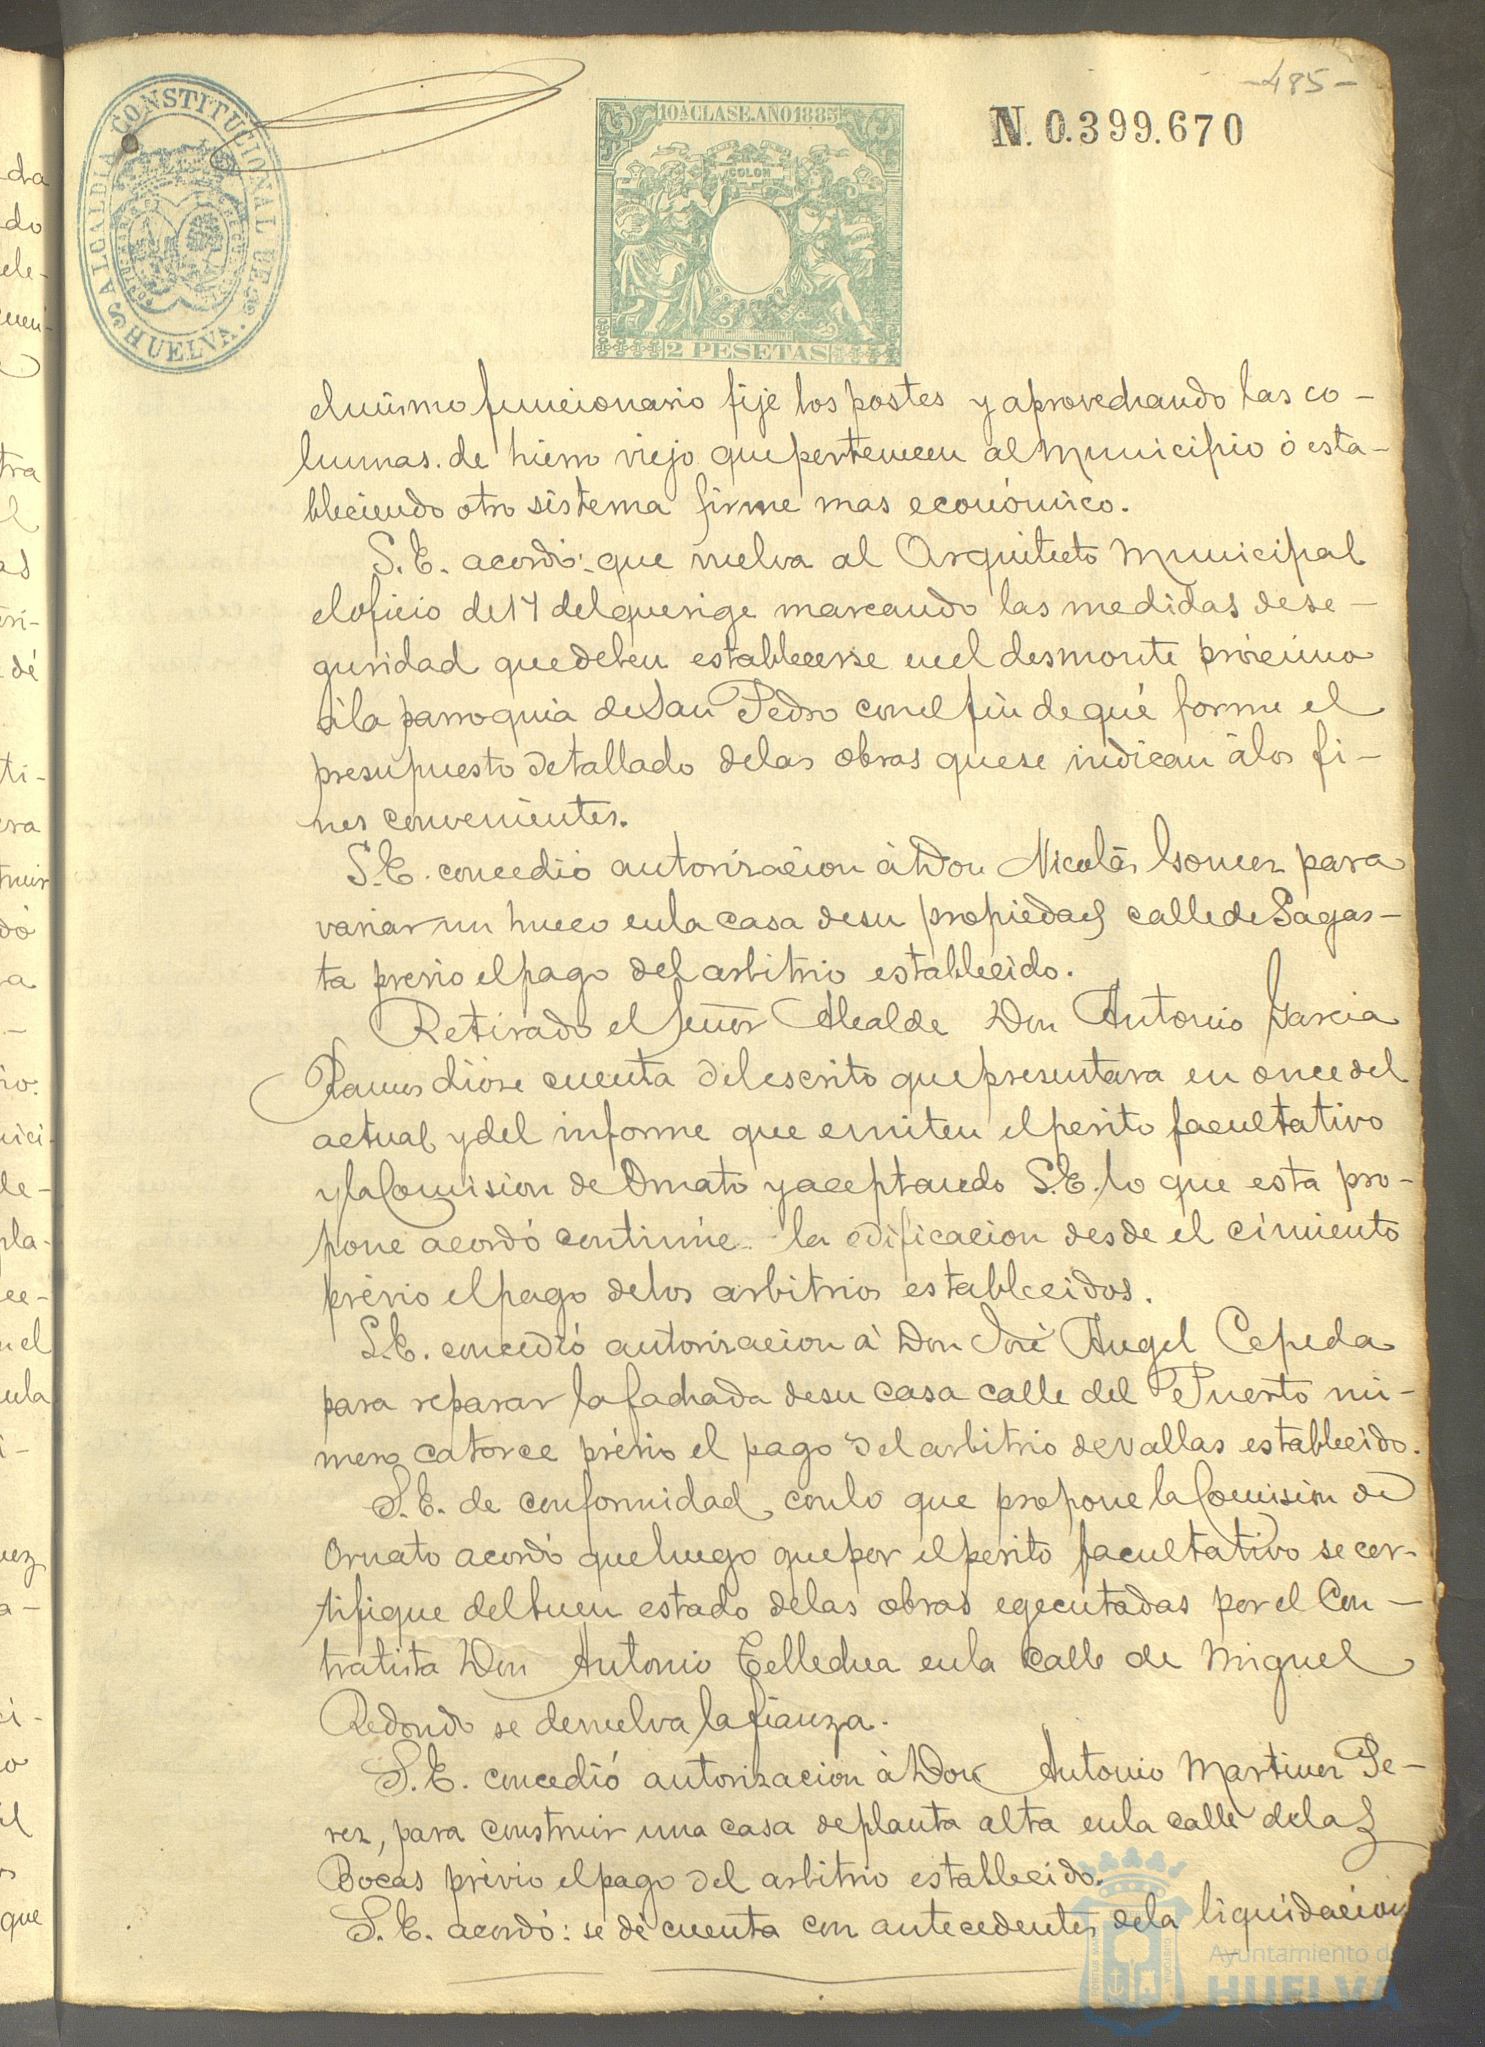 -485-
ALCALDIA CONSTITUCIONAL DE HUELVA.
10ª CLASE. AÑO 1885
COLON
2 PESETAS
N. 0.399.670
el mismo funcionario fije los postes y aprovechando las co-
lumnas de hierro viejo que pertenecen al Municipio ó esta-
bleciendo otro sistema firme mas económico.
S. E. acordó: que vuelva al Arquitecto Municipal
el oficio de 17 del que rige marcando las medidas de se-
guridad que deben establecerse en el desmonte próximo
á la parroquia de San Pedro con el fin de qué forme el
presupuesto detallado de las obras que se indican á los fi-
nes convenientes.
S. E. concedió autorizacion á Don Nicolás Gomez para
variar un hueco en la casa de su propiedad calle de Sagas-
ta previo el pago del arbitrio establecido.
Retirado el Señor Alcalde Don Antonio Garcia
Ramos dióse cuenta del escrito que presentara en once del
actual y del informe que emiten el perito facultativo
y la Comision de Ornato y aceptando S. E. lo que esta pro-
pone acordó continúe la edificacion desde el cimiento
prévio el pago de los arbitrios establecidos.
S. E. concedió autorizacion á Don José Angel Cepeda
para reparar la fachada de su casa calle del Puerto nú-
mero catorce prévio el pago del arbitrio de vallas establecido.
S. E. de conformidad con lo que propone la Comision de
Ornato acordó que luego que por el perito facultativo se cer-
tifique del buen estado de las obras egecutadas por el Con-
tratista Don Antonio Tellechea en la calle de Miguel
Redondo se devuelva la fianza.
S. E. concedió autorizacion á Don Antonio Martinez Pe-
rez, para construir una casa de planta alta en la calle de las
Bocas prévio el pago del arbitrio establecido.
S. E. acordó: se dé cuenta con antecedentes de la liquidacion
Ayuntamiento de
HUELVA